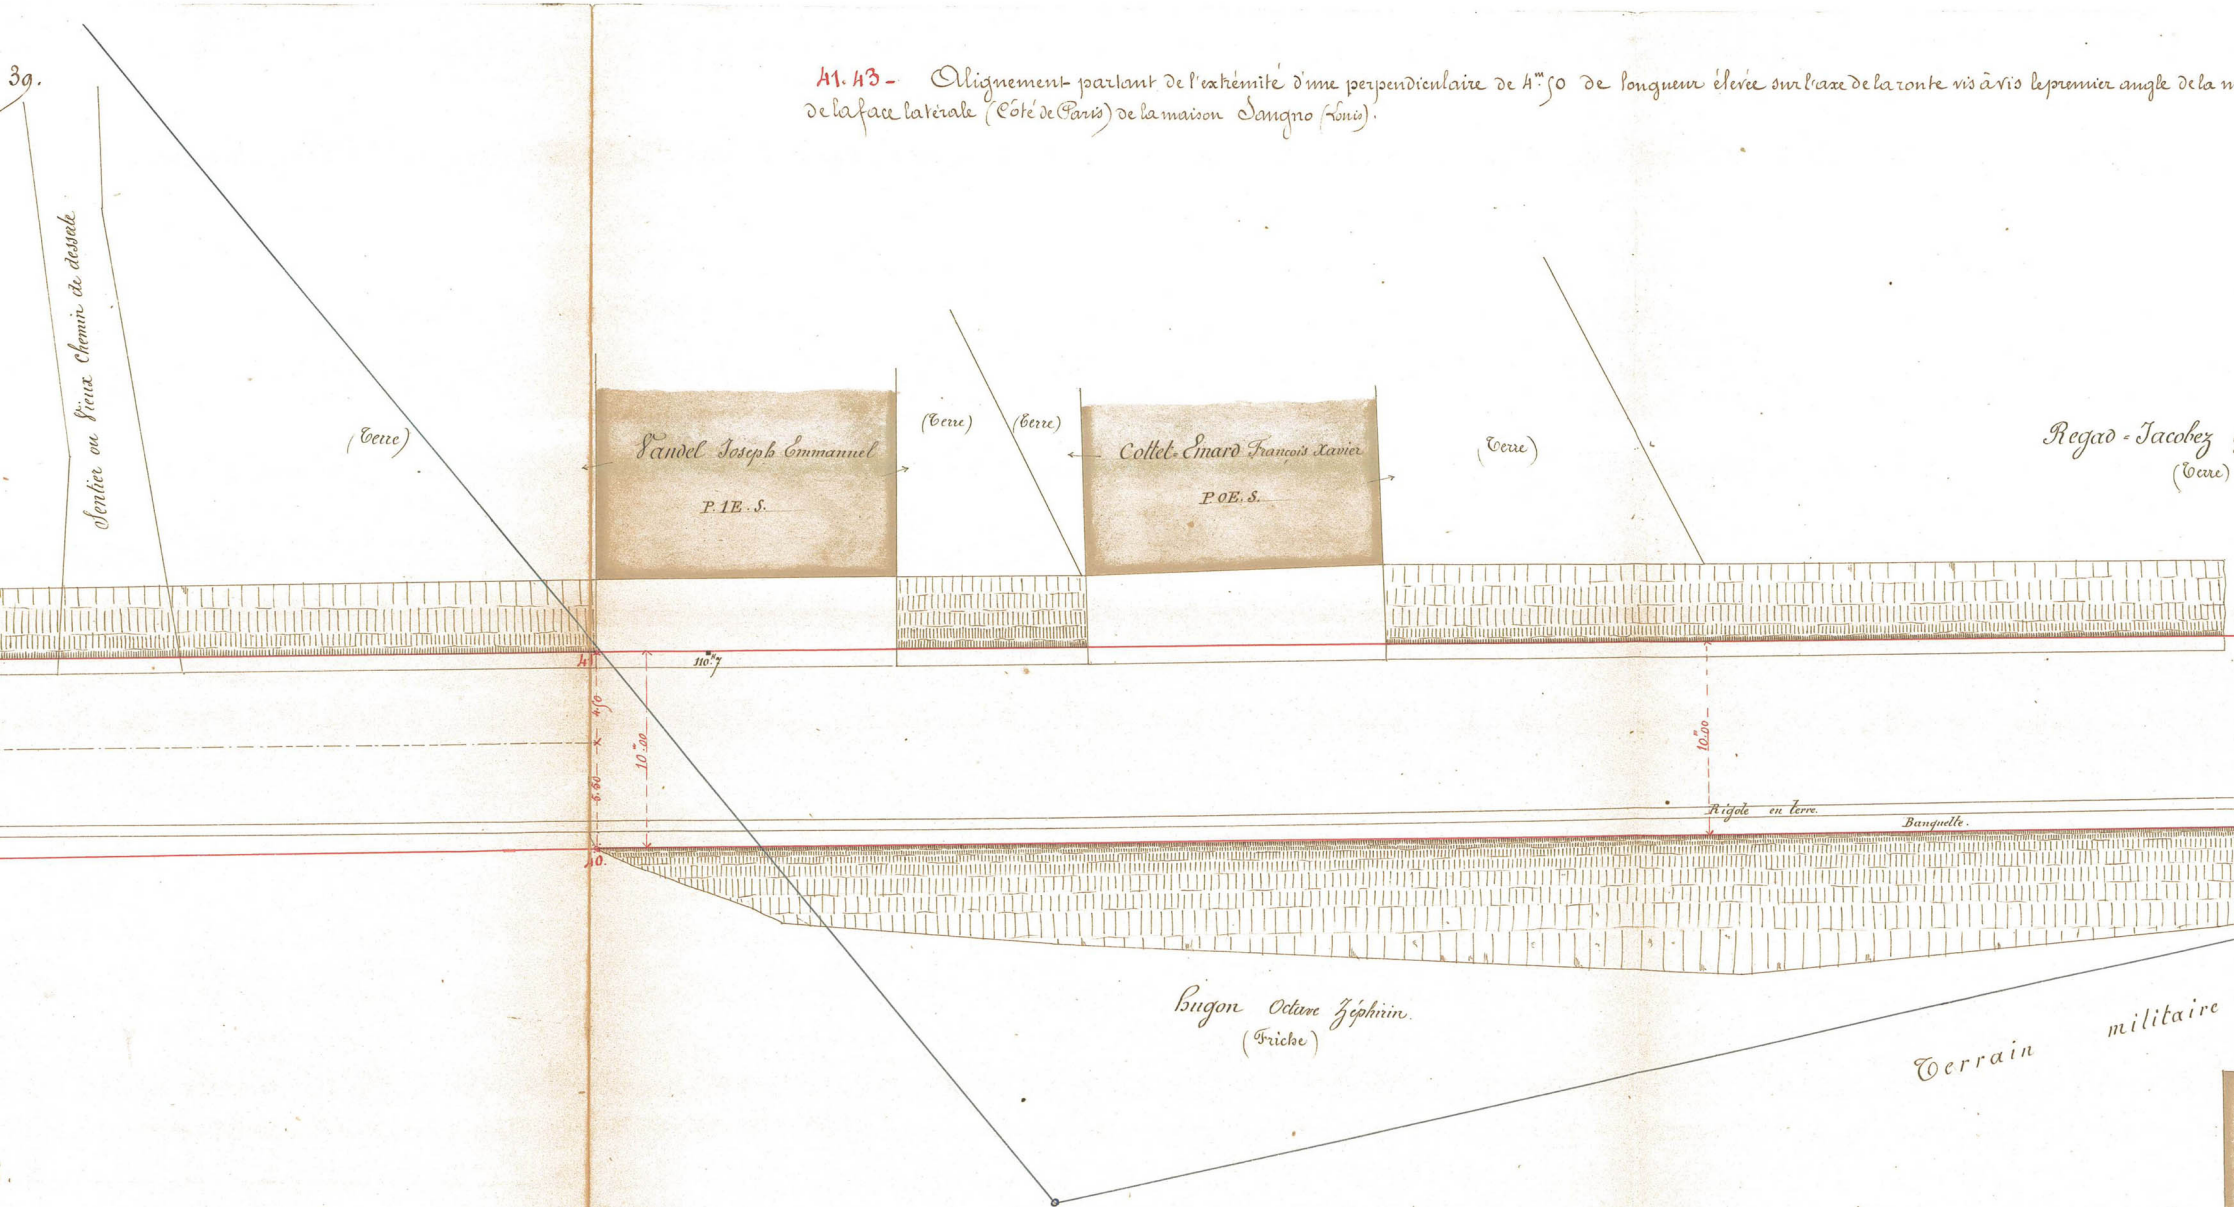 39.
41.43 - Alignement partant de l'extrémité d'une perpendiculaire de 4m.50 de longueur élevée sur l'axe de la route vis à vis le premier angle de la
de la face latérale (Côté de Paris) de la maison (Louis).
Sentier ou Vieux Chemin de desserte
(Terre)
Vandel Joseph Emmanuel
P.1E.S.
(Terre)
(Terre)
Cottet-Emard François Xavier
P.0E.S.
(Terre)
Regad-Jacobez
(Terre)
41
110m.7
4.50
10m.00
5.50
10m.00
Rigole en terre.
Banquette.
40.
Hugon Octave Zéphirin.
(Friche)
Terrain militaire